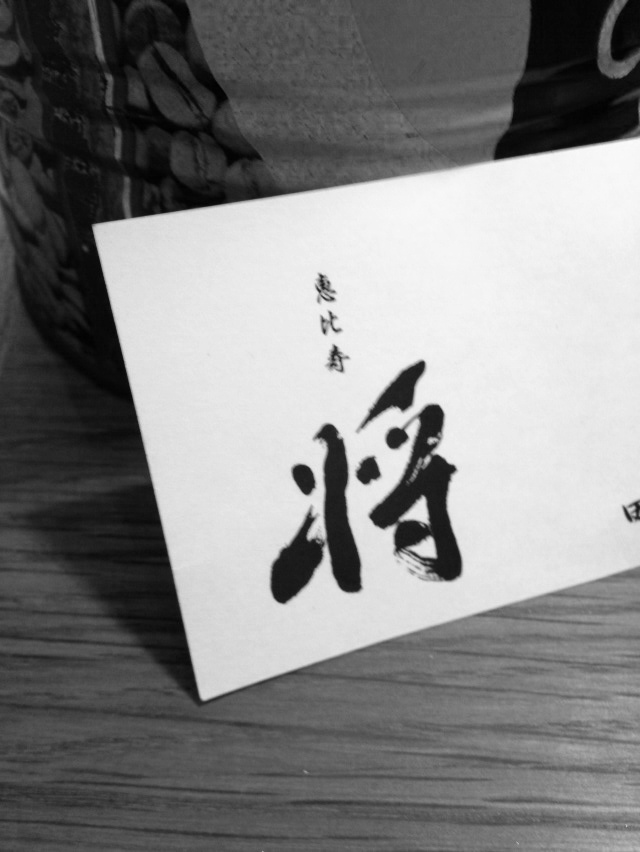 恵比寿
将